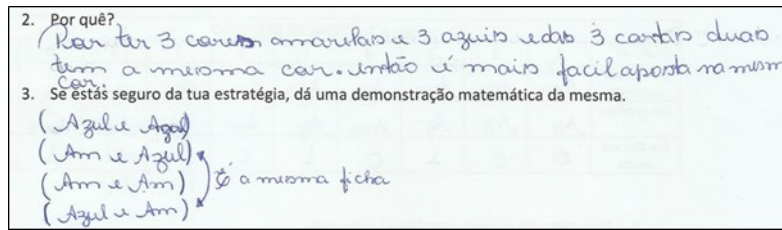 2. Por quê?
Por ter 3 cores amarelas e 3 azuis e das 3 cartas duas
tem a mesma cor. então é mais facil aposta na mesm
cor.
3. Se estás seguro da tua estratégia, dá uma demonstração matemática da mesma.
(Azul e Azul)
(Am e Azul)
(Am e Am) É a mesma ficha
(Azul e Am)